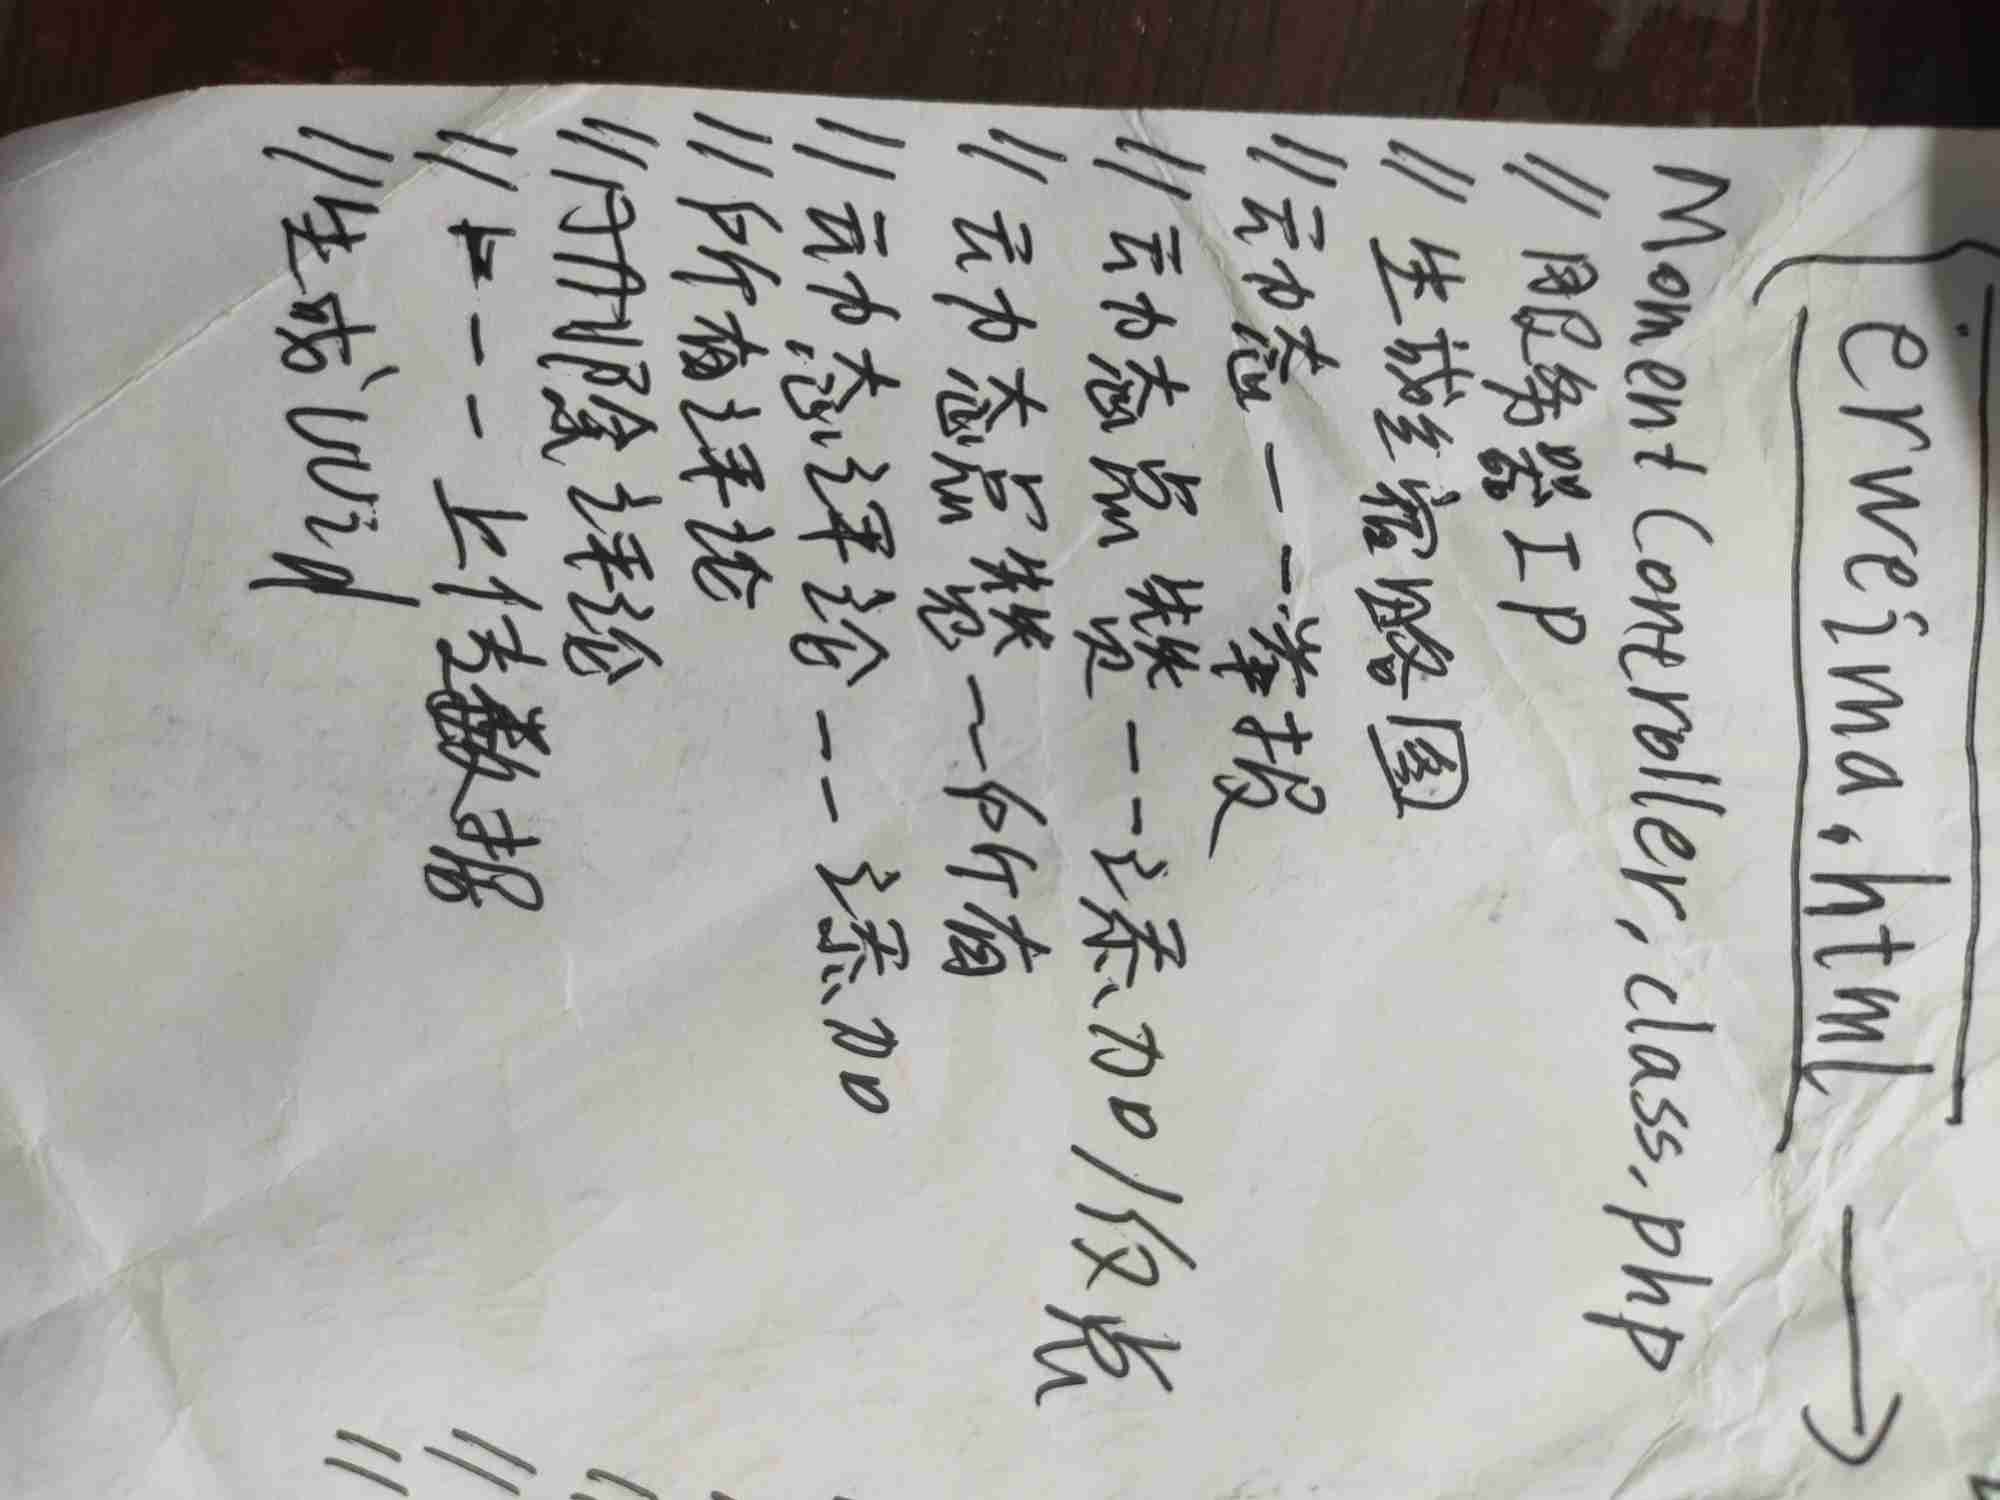 erweima.html
MomentController.class.php
//服务器IP
//生成缩略图
//动态--举报
//动态点赞--添加/修改
//动态点赞--所有
//动态评论--添加
//所有评论
//删除评论
//--上传数据
//生成uuid